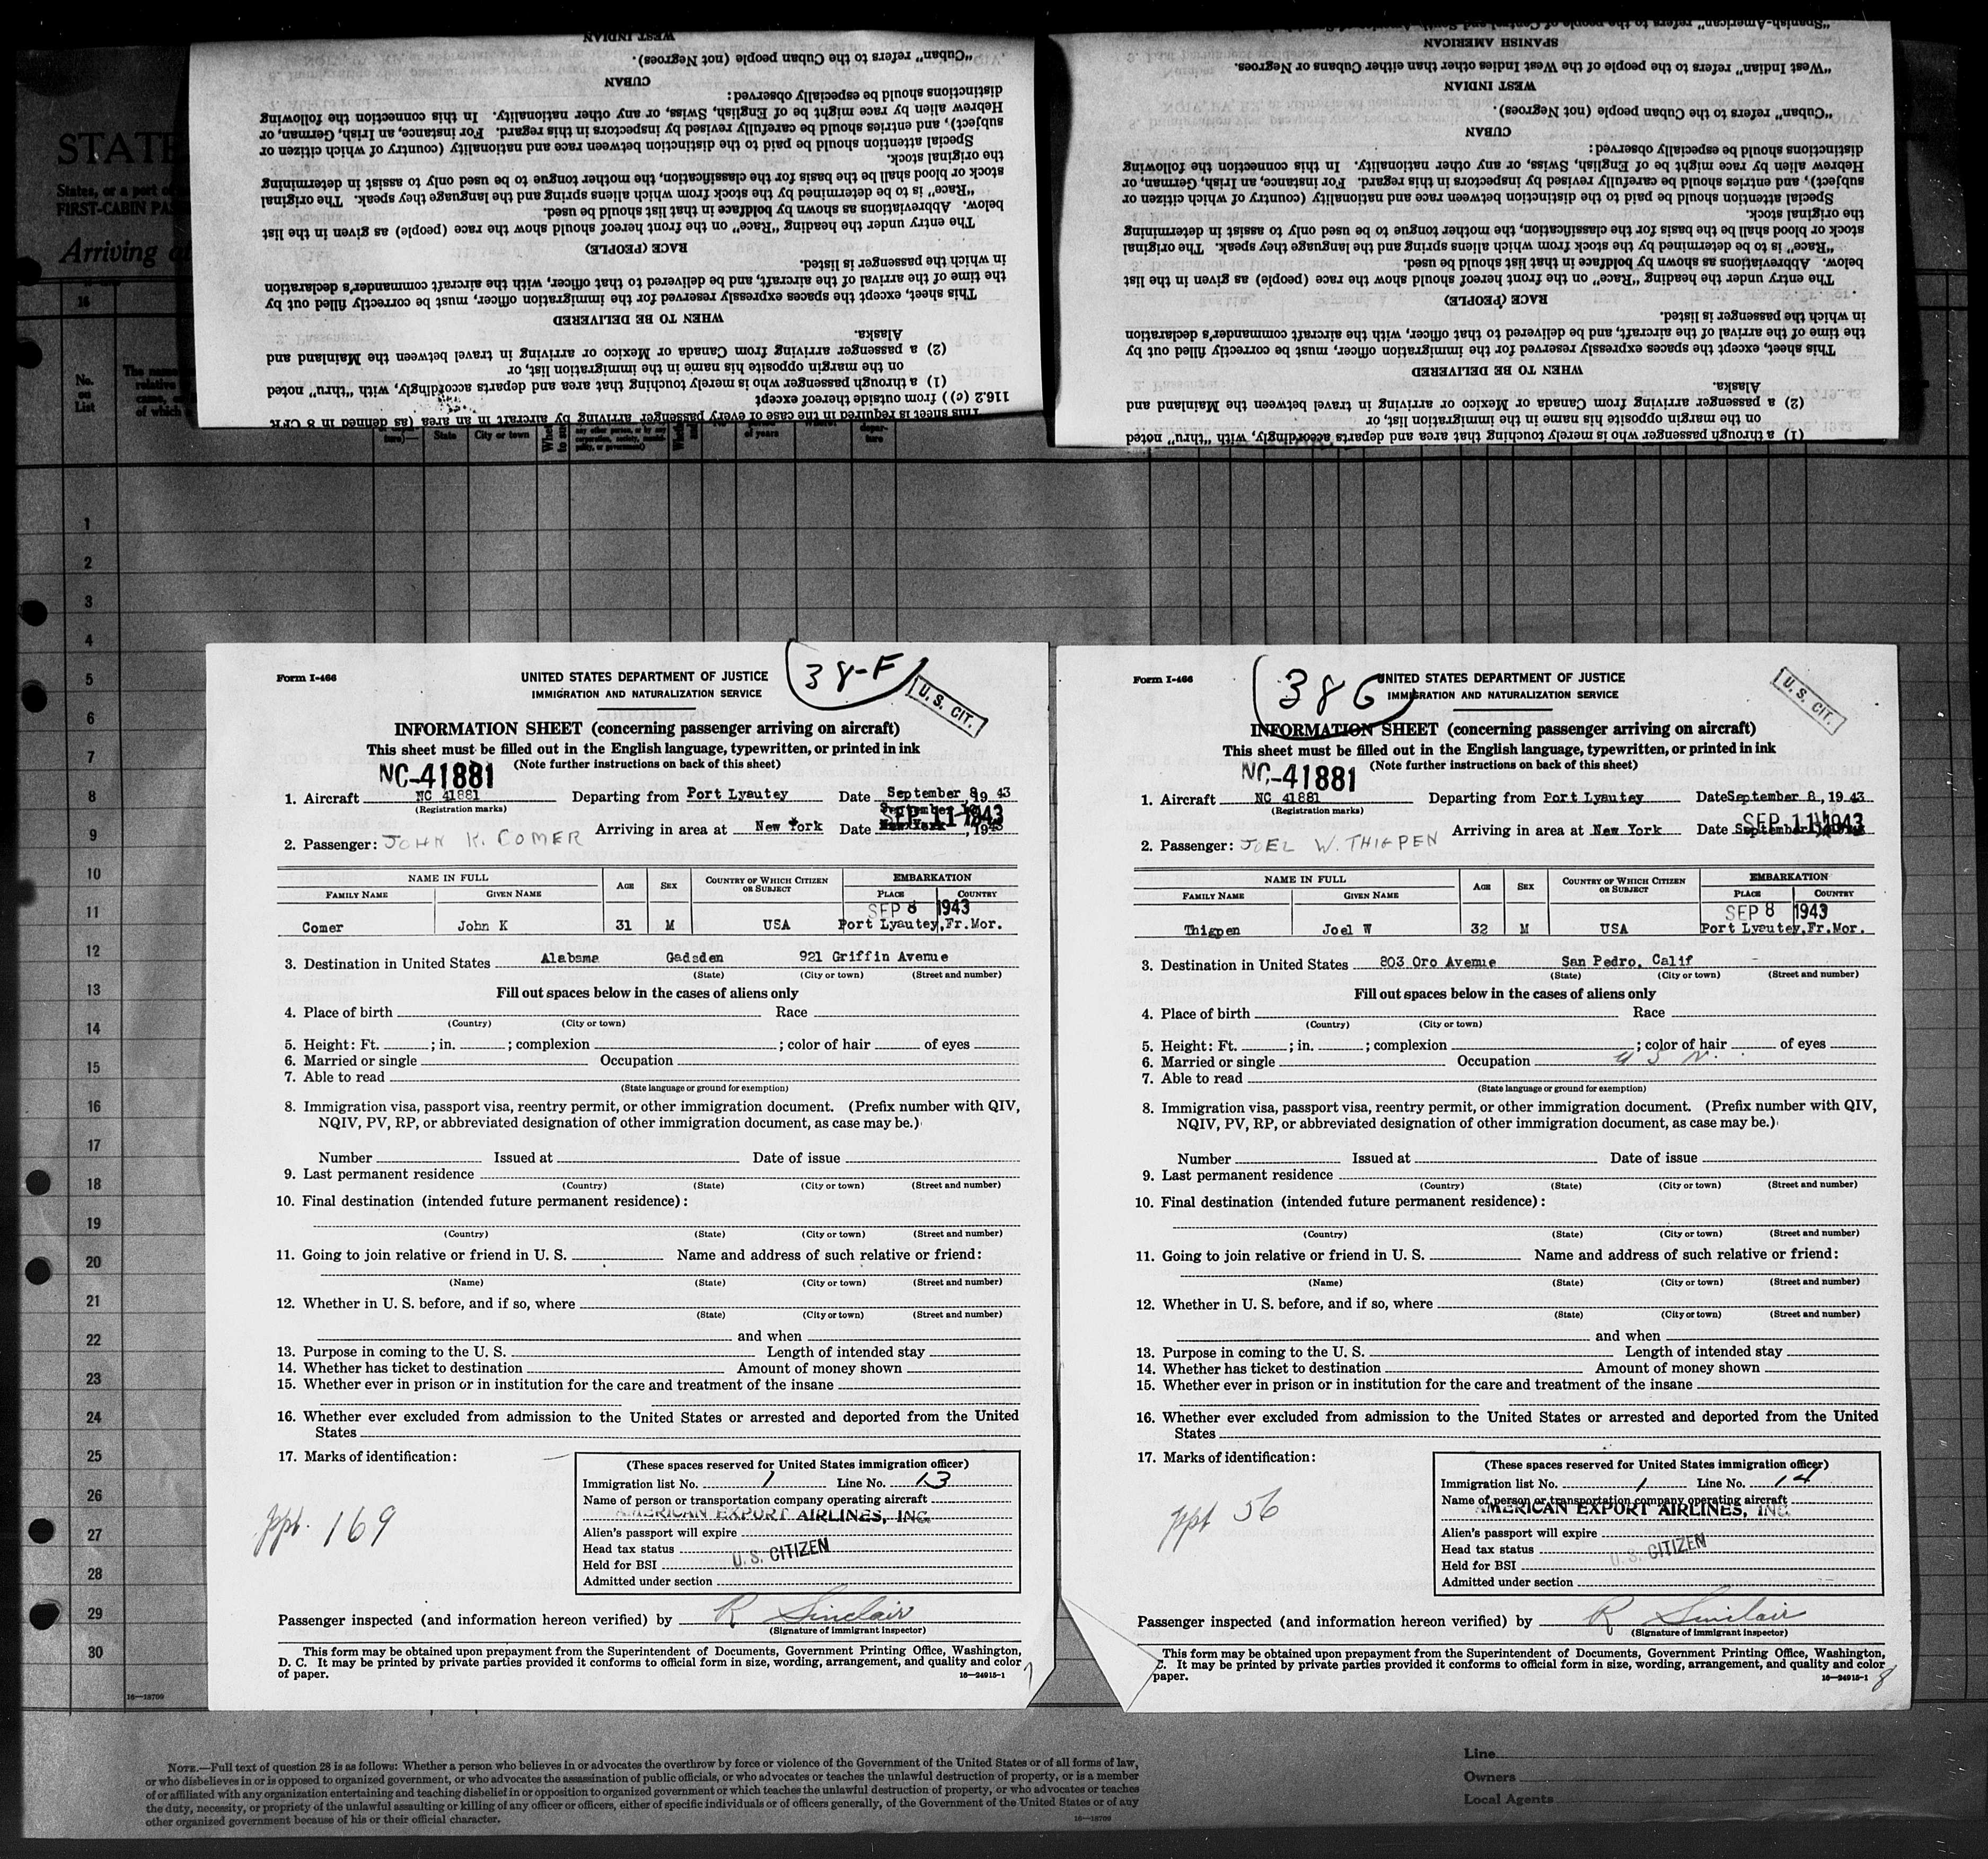 "Cuban" refers to the Cuban people (not Negroes).
WEST INDIAN
This sheet is required in the case of every passenger arriving by aircraft in an area (as defined in 8 CFR
116.2 (c)) from outside thereof except
(1) a through passenger who is merely touching that area and departs accordingly, with "thru" noted
on the margin opposite his name in the immigration list, or
(2) a passenger arriving from Canada or Mexico or arriving in travel between the Mainland and
Alaska.
WHEN TO BE DELIVERED
This sheet, except the spaces expressly reserved for the immigration officer, must be correctly filled out by
the time of the arrival of the aircraft, and be delivered to that officer, with the aircraft commander's declaration
in which the passenger is listed.
RACE (PEOPLE)
The entry under the heading "Race" on the front hereof should show the race (people) as given in the list
below. Abbreviations as shown by boldface in that list should be used.
"Race" is to be determined by the stock from which aliens spring and the language they speak. The original
stock or blood shall be the basis for the classification, the mother tongue to be used only to assist in determining
the original stock.
Special attention should be paid to the distinction between race and nationality (country of which citizen or
subject), and entries should be carefully revised by inspectors in this regard. For instance, an Irish, German, or
Hebrew alien by race might be of English, Swiss, or any other nationality. In this connection the following
distinctions should be especially observed:
CUBAN
(1) a through passenger who is merely touching that area and departs accordingly, with "thru" noted
on the margin opposite his name in the immigration list, or
(2) a passenger arriving from Canada or Mexico or arriving in travel between the Mainland and
Alaska.
WHEN TO BE DELIVERED
This sheet, except the spaces expressly reserved for the immigration officer, must be correctly filled out by
the time of the arrival of the aircraft, and be delivered to that officer, with the aircraft commander's declaration
in which the passenger is listed.
RACE (PEOPLE)
The entry under the heading "Race" on the front hereof should show the race (people) as given in the list
below. Abbreviations as shown by boldface in that list should be used.
"Race" is to be determined by the stock from which aliens spring and the language they speak. The original
stock or blood shall be the basis for the classification, the mother tongue to be used only to assist in determining
the original stock.
Special attention should be paid to the distinction between race and nationality (country of which citizen or
subject), and entries should be carefully revised by inspectors in this regard. For instance, an Irish, German, or
Hebrew alien by race might be of English, Swiss, or any other nationality. In this connection the following
distinctions should be especially observed:
CUBAN
"Cuban" refers to the Cuban people (not Negroes).
WEST INDIAN
"West Indian" refers to the people of the West Indies other than either Cubans or Negroes.
SPANISH AMERICAN
"Spanish-American" refers to the people of Central and South America
STATE
States, or a port of
FIRST-CABIN PAS
Arriving at
16
No. on List
State City or town
1
2
3
4
5
6
7
8
9
10
11
12
13
14
15
16
17
18
19
20
21
22
23
24
25
26
27
28
29
30
16—18709
38-F
Form I-466
UNITED STATES DEPARTMENT OF JUSTICE
IMMIGRATION AND NATURALIZATION SERVICE
U. S. CIT.
INFORMATION SHEET (concerning passenger arriving on aircraft)
This sheet must be filled out in the English language, typewritten, or printed in ink
(Note further instructions on back of this sheet)
NC-41881
1. Aircraft NC 41881 Departing from Port Lyautey Date September 8, 1943
(Registration marks)
Arriving in area at New York Date SEP 11 1943
2. Passenger: JOHN K. COMER
NAME IN FULL AGE SEX COUNTRY OF WHICH CITIZEN OR SUBJECT EMBARKATION
FAMILY NAME GIVEN NAME PLACE COUNTRY
SEP 8 1943
Comer John K 31 M USA Port Lyautey, Fr. Mor.
3. Destination in United States Alabama Gadsden 921 Griffin Avenue
(State) (City or town) (Street and number)
Fill out spaces below in the cases of aliens only
4. Place of birth Race
(Country) (City or town)
5. Height: Ft. ; in. ; complexion ; color of hair of eyes
6. Married or single Occupation
7. Able to read
(State language or ground for exemption)
8. Immigration visa, passport visa, reentry permit, or other immigration document. (Prefix number with QIV,
NQIV, PV, RP, or abbreviated designation of other immigration document, as case may be.)
Number Issued at Date of issue
9. Last permanent residence
(Country) (State) (City or town) (Street and number)
10. Final destination (intended future permanent residence):
(Country) (State) (City or town) (Street and number)
11. Going to join relative or friend in U. S. Name and address of such relative or friend:
(Name) (State) (City or town) (Street and number)
12. Whether in U. S. before, and if so, where
(State) (City or town) (Street and number)
and when
13. Purpose in coming to the U. S. Length of intended stay
14. Whether has ticket to destination Amount of money shown
15. Whether ever in prison or in institution for the care and treatment of the insane
16. Whether ever excluded from admission to the United States or arrested and deported from the United
States
17. Marks of identification:
(These spaces reserved for United States immigration officer)
Immigration list No. 1 Line No. 13
Name of person or transportation company operating aircraft
AMERICAN EXPORT AIRLINES, INC.
Alien's passport will expire
Head tax status
U. S. CITIZEN
Held for BSI
Admitted under section
ppt. 169
Passenger inspected (and information hereon verified) by R Sinclair
(Signature of immigrant inspector)
This form may be obtained upon prepayment from the Superintendent of Documents, Government Printing Office, Washington,
D. C. It may be printed by private parties provided it conforms to official form in size, wording, arrangement, and quality and color
of paper.
16—24915-1
7
38G
Form I-466
UNITED STATES DEPARTMENT OF JUSTICE
IMMIGRATION AND NATURALIZATION SERVICE
U. S. CIT.
INFORMATION SHEET (concerning passenger arriving on aircraft)
This sheet must be filled out in the English language, typewritten, or printed in ink
(Note further instructions on back of this sheet)
NC-41881
1. Aircraft NC 41881 Departing from Port Lyautey Date September 8, 1943
(Registration marks)
Arriving in area at New York Date September SEP 11 1943
2. Passenger: JOEL W. THIGPEN
NAME IN FULL AGE SEX COUNTRY OF WHICH CITIZEN OR SUBJECT EMBARKATION
FAMILY NAME GIVEN NAME PLACE COUNTRY
SEP 8 1943
Thigpen Joel W 32 M USA Port Lyautey, Fr. Mor.
3. Destination in United States 803 Oro Avenue San Pedro, Calif
(State) (City or town) (Street and number)
Fill out spaces below in the cases of aliens only
4. Place of birth Race
(Country) (City or town)
5. Height: Ft. ; in. ; complexion ; color of hair of eyes
6. Married or single Occupation U S N.
7. Able to read
(State language or ground for exemption)
8. Immigration visa, passport visa, reentry permit, or other immigration document. (Prefix number with QIV,
NQIV, PV, RP, or abbreviated designation of other immigration document, as case may be.)
Number Issued at Date of issue
9. Last permanent residence
(Country) (State) (City or town) (Street and number)
10. Final destination (intended future permanent residence):
(Country) (State) (City or town) (Street and number)
11. Going to join relative or friend in U. S. Name and address of such relative or friend:
(Name) (State) (City or town) (Street and number)
12. Whether in U. S. before, and if so, where
(State) (City or town) (Street and number)
and when
13. Purpose in coming to the U. S. Length of intended stay
14. Whether has ticket to destination Amount of money shown
15. Whether ever in prison or in institution for the care and treatment of the insane
16. Whether ever excluded from admission to the United States or arrested and deported from the United
States
17. Marks of identification:
(These spaces reserved for United States immigration officer)
Immigration list No. 1 Line No. 14
Name of person or transportation company operating aircraft
AMERICAN EXPORT AIRLINES, INC.
Alien's passport will expire
Head tax status
U. S. CITIZEN
Held for BSI
Admitted under section
ppt 56
Passenger inspected (and information hereon verified) by R Sinclair
(Signature of immigrant inspector)
This form may be obtained upon prepayment from the Superintendent of Documents, Government Printing Office, Washington,
C. It may be printed by private parties provided it conforms to official form in size, wording, arrangement, and quality and color
paper.
16—24915-1
8
NOTE.—Full text of question 28 is as follows: Whether a person who believes in or advocates the overthrow by force or violence of the Government of the United States or of all forms of law,
or who disbelieves in or is opposed to organized government, or who advocates the assassination of public officials, or who advocates or teaches the unlawful destruction of property, or is a member
of or affiliated with any organization entertaining and teaching disbelief in or opposition to organized government or which teaches the unlawful destruction of property, or who advocates or teaches
the duty, necessity, or propriety of the unlawful assaulting or killing of any officer or officers, either of specific individuals or of officers generally, of the Government of the United States or of any
other organized government because of his or their official character.
16—18709
Line
Owners
Local Agents